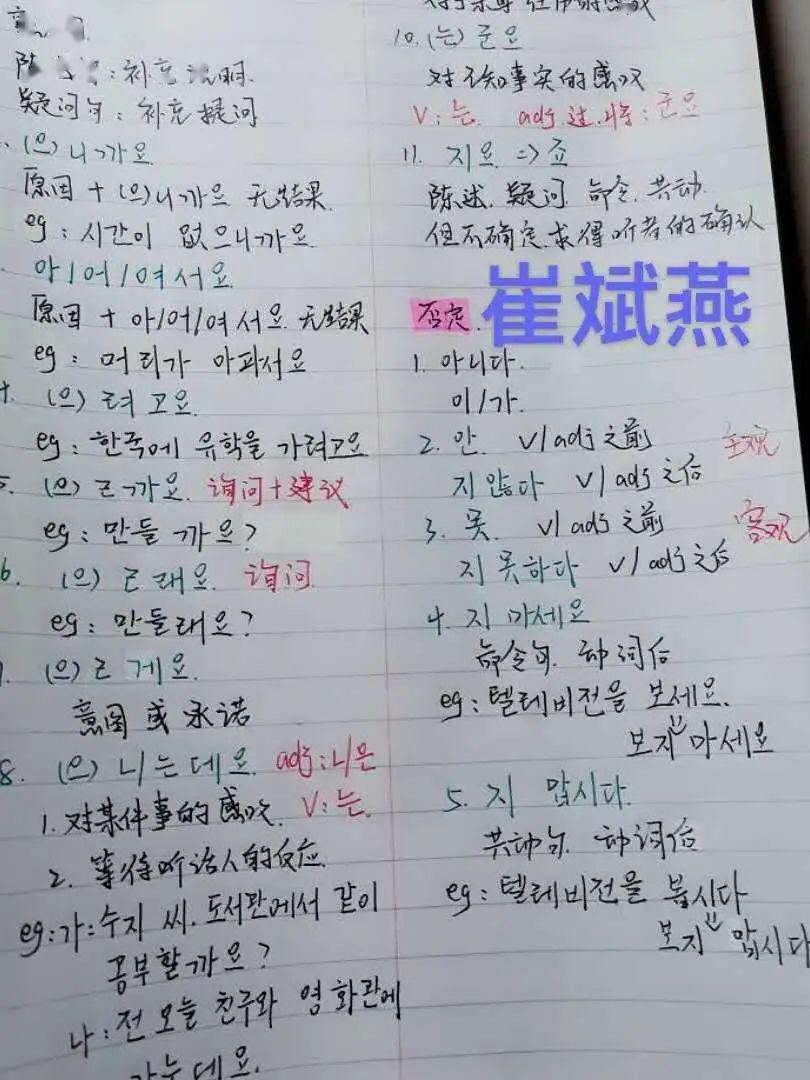 补充说明.
疑问句：补充提问
(으)니까요
原因 + (으)니까요 无结果.
eg：시간이 없으니까요
아/어/여서요
原因 + 아/어/여서요. 无结果
eg：머리가 아파서요
(으)려고요.
eg：한국에 유학을 가려고요
5. (으)ㄹ까요. 询问+建议
eg：만들까요？
6. (으)ㄹ래요. 询问
eg：만들래요？
(으)ㄹ게요.
意图 或 承诺
8. (으)ㄴ/는데요. adj：ㄴ/은
1. 对某件事的感叹. V：는.
2. 等待听话人的反应.
eg：가：수지 씨. 도서관에서 같이
공부할까요？
나：전 오늘 친구와 영화관에
가는데요.
10. (는)군요
对不知事实的感叹
V：는. adj.过.将：군요
11. 지요 => 죠
陈述. 疑问. 命令. 共动.
但不确定求得听者的确认
崔斌燕
否定.
1. 아니다.
이/가.
2. 안. v/adj 之前 主观
지 않다 v/adj 之后
3. 못. v/adj 之前 客观
지 못하다 v/adj 之后
4. 지 마세요
命令句. 动词后
eg：텔레비전을 보세요.
보지 마세요
5. 지 맙시다.
共动句. 动词后
eg：텔레비전을 봅시다
보지 맙시다